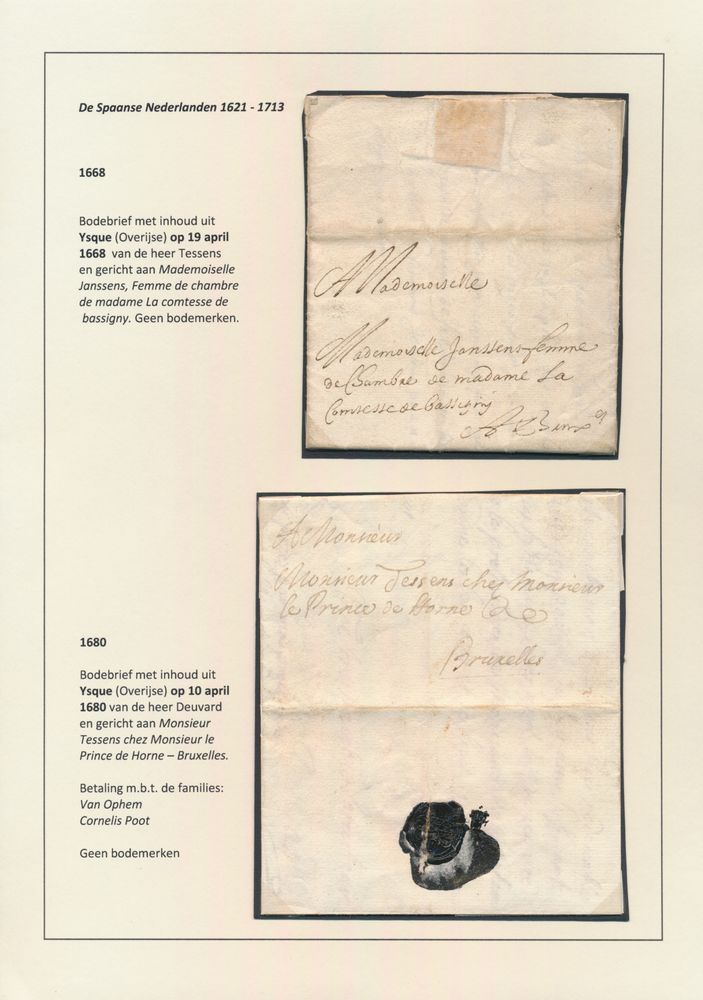 De Spaanse Nederlanden 1621 - 1713
1668
Bodebrief met inhoud uit
Ysque (Overijse) op 19 april
1668 van de heer Tessens
en gericht aan Mademoiselle
Janssens, Femme de chambre
de madame La comtesse de
bassigny. Geen bodemerken.
A Mademoiselle
Mademoiselle Janssens femme
de Chambre de madame La
Comtesse de Bassigny
A
A Monsieur
Monsieur Tessens chez Monsieur
le Prince de Horne
Bruxelles
1680
Bodebrief met inhoud uit
Ysque (Overijse) op 10 april
1680 van de heer Deuvard
en gericht aan Monsieur
Tessens chez Monsieur le
Prince de Horne – Bruxelles.
Betaling m.b.t. de families:
Van Ophem
Cornelis Poot
Geen bodemerken